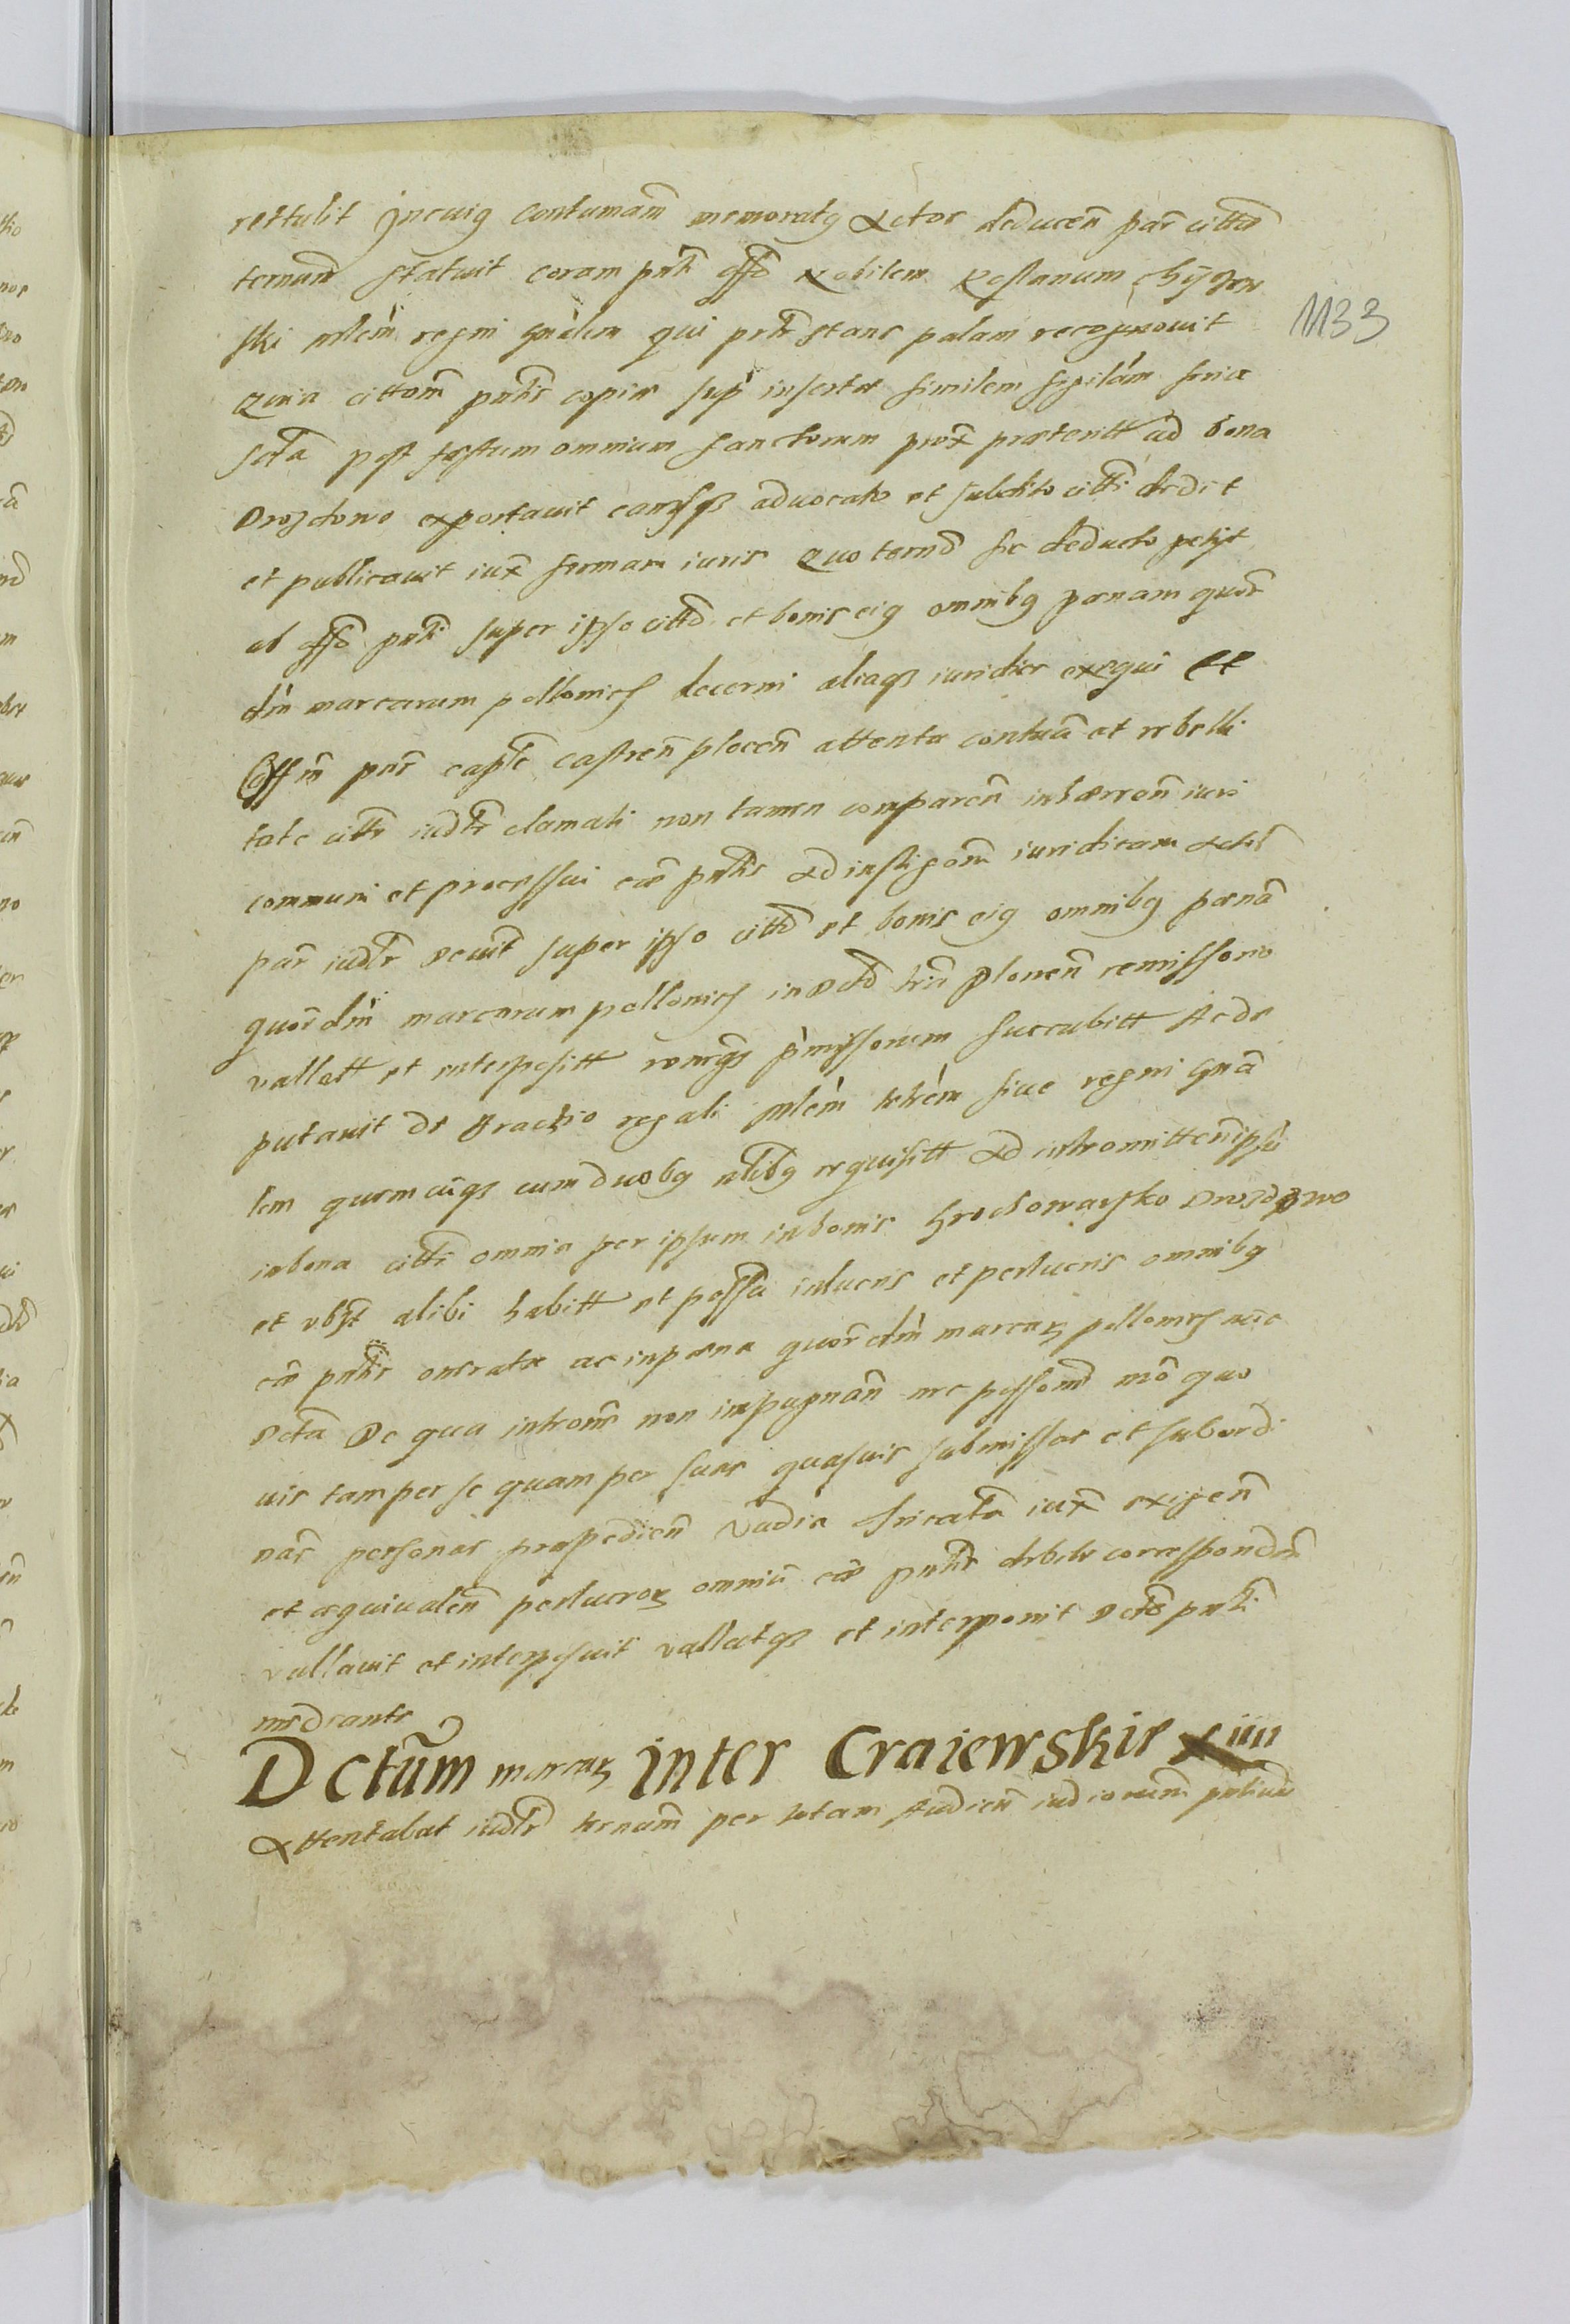 rettulit Jncuiq Contumam̃ memoratq Actor deducen̄ par̃ cittō
ternum̃ statuit coram pn̄ti offō Nobilem Rostanum
ski mlem̃ regni gn̄alem qui pn̄ter stans palam recognouit
Quia cittom̃ pn̄tis copiæ sup̄ insertæ similem sigilat̃am feria
sexta post festum omnium sanctorum prox̃ præteritt ad bona
Drozdowo exportauit eamqз aduocato et subdito citti dedit
et publicauit iux̃ formam iuris Quo termō sic deducto petijt
ab offō pn̄ti super ipso cittō et bonis eiq omnibq pœnam quor̃
dim̃ marcarum pollonics̃ decerni aliaqз iuridice exequi Et
Offm̃ pn̄s capt̃e castren̄ plocen̄ attenta contuā et rebelli
tate citti iudtr̃ clamati non tamen comparen̄ inhærren̄ iuri
communi et processui cæ pn̄tis Ad instigaōm̃ iuridicam Actis̃
par̃ iudtr̃ decuit̃ super ipso cittō et bonis eiq omnibq pœnā
quor̃ dim̃ marcarum pollonics̃ in terris̃ plocen̄ remissorio
vallatt et interpositt romqз p̄missorum succubitt Ac de
putauit de Brachio regali mlem̃ trtem̃ siue regni gnā
lem quemcũqз cum duobq nlibq requisitt Ad intromitten̄ ipsũ
in bona citti omnia per ipsum in bonis Grochowarsko Drozdowo
et vbiт alibi habitt et possā in lucris et perlucris omnibq
cæ pn̄tis onerata ac in pœna quor̃ dim̃ marcarз pollonics̃ nūc
Dcta De qua intromiss̃ non impugnan̄ nec possem̄ mō quo
uis tam per se quam per suas quasuis submissas et subord
nar̃ personas præpedien̄ Vadia succata iux̃ exigen̄
et æquiualen̄ perlucroз omniũ cæ pn̄tis debite corresponden̄
vallauit et interposuit vallatqз et interponit Dcto pn̄ti
medeante
Dctũm marcaз inter Craiewskie xiiii
Attentabat iudtr̃ ternum̃ per totam Audien̄ iudiciorum̃
1133